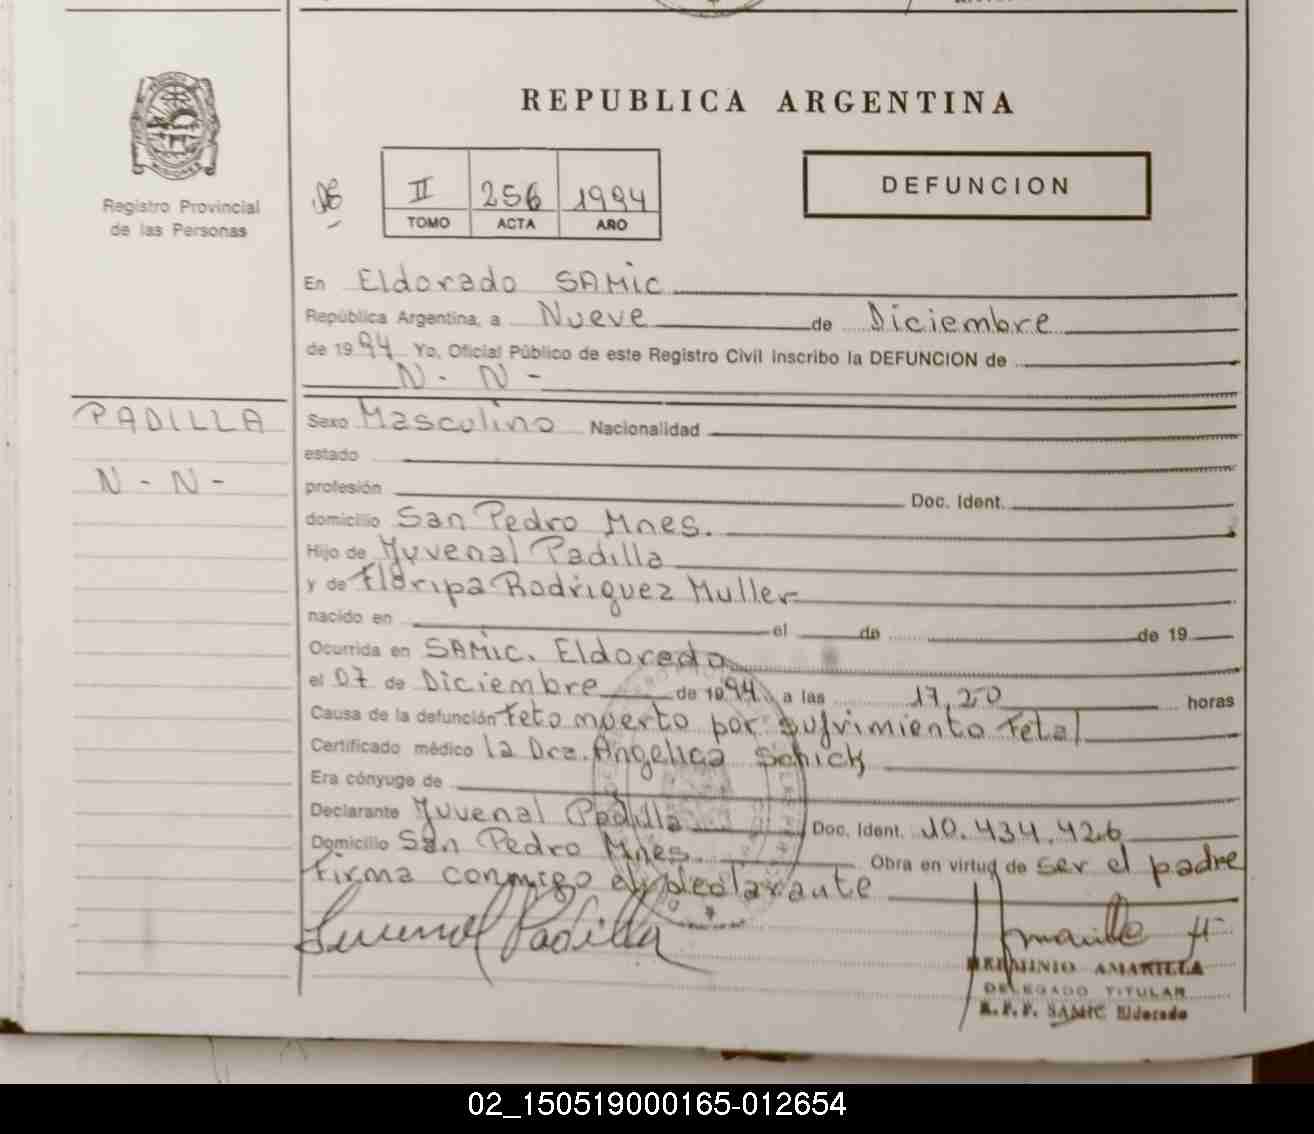 REPUBLICA ARGENTINA
Registro Provincial
de las Personas
II 256 1994
TOMO ACTA AÑO
DEFUNCION
En Eldorado SAMIC
República Argentina, a Nueve de Diciembre
de 1994 Yo, Oficial Público de este Registro Civil inscribo la DEFUNCION de
N - N -
PADILLA
N - N -
Sexo Masculino Nacionalidad
estado
profesión Doc. Ident.
domicilio San Pedro Mnes.
Hijo de Yuvenal Padilla
y de Floripa Rodriguez Muller
nacido en el de de 19
Ocurrida en SAMIC. Eldorado
el 07 de Diciembre de 1994 a las 17,20 horas
Causa de la defunción Feto muerto por sufrimiento Fetal
Certificado médico la Dra. Angelica Schick
Era cónyuge de
Declarante Yuvenal Padilla Doc. Ident. 10.434.426
Domicilio San Pedro Mnes. Obra en virtud de ser el padre
Firma conmigo el declarante
Juvenal Padilla
Amarilla H
HERMINIO AMARILLA
DELEGADO TITULAR
R.P.P. SAMIC Eldorado
02_150519000165-012654